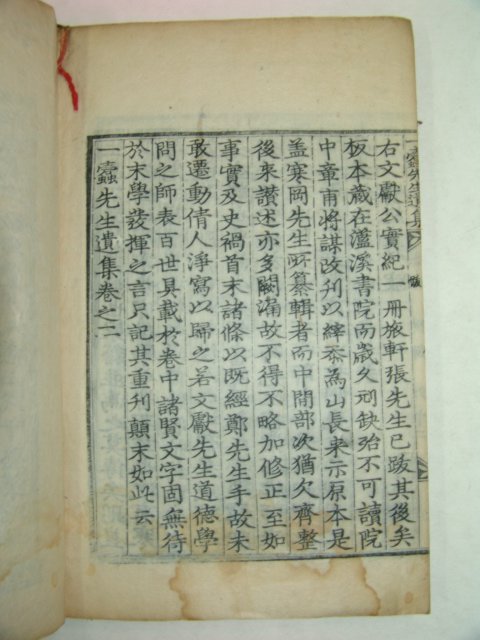 右文獻公實紀一冊旅軒張先生已跋其後矣
板本藏在灆溪書院而歲久刓缺殆不可讀院
中章甫將謀改刊以縡忝為山長来示原本是
盖寒岡先生所纂輯者而中間部次猶欠齊整
後來讃述亦多闕漏故不得不略加修正至如
事實及史禍首末諸條以既經鄭先生手故未
敢遷動倩人淨寫以歸之若文獻先生道德學
問之師表百世具載於卷中諸賢文字固無待
於末學發揮之言只記其重刊顛末如此云
一蠹先生遺集卷之三
一蠹先生遺集
跋